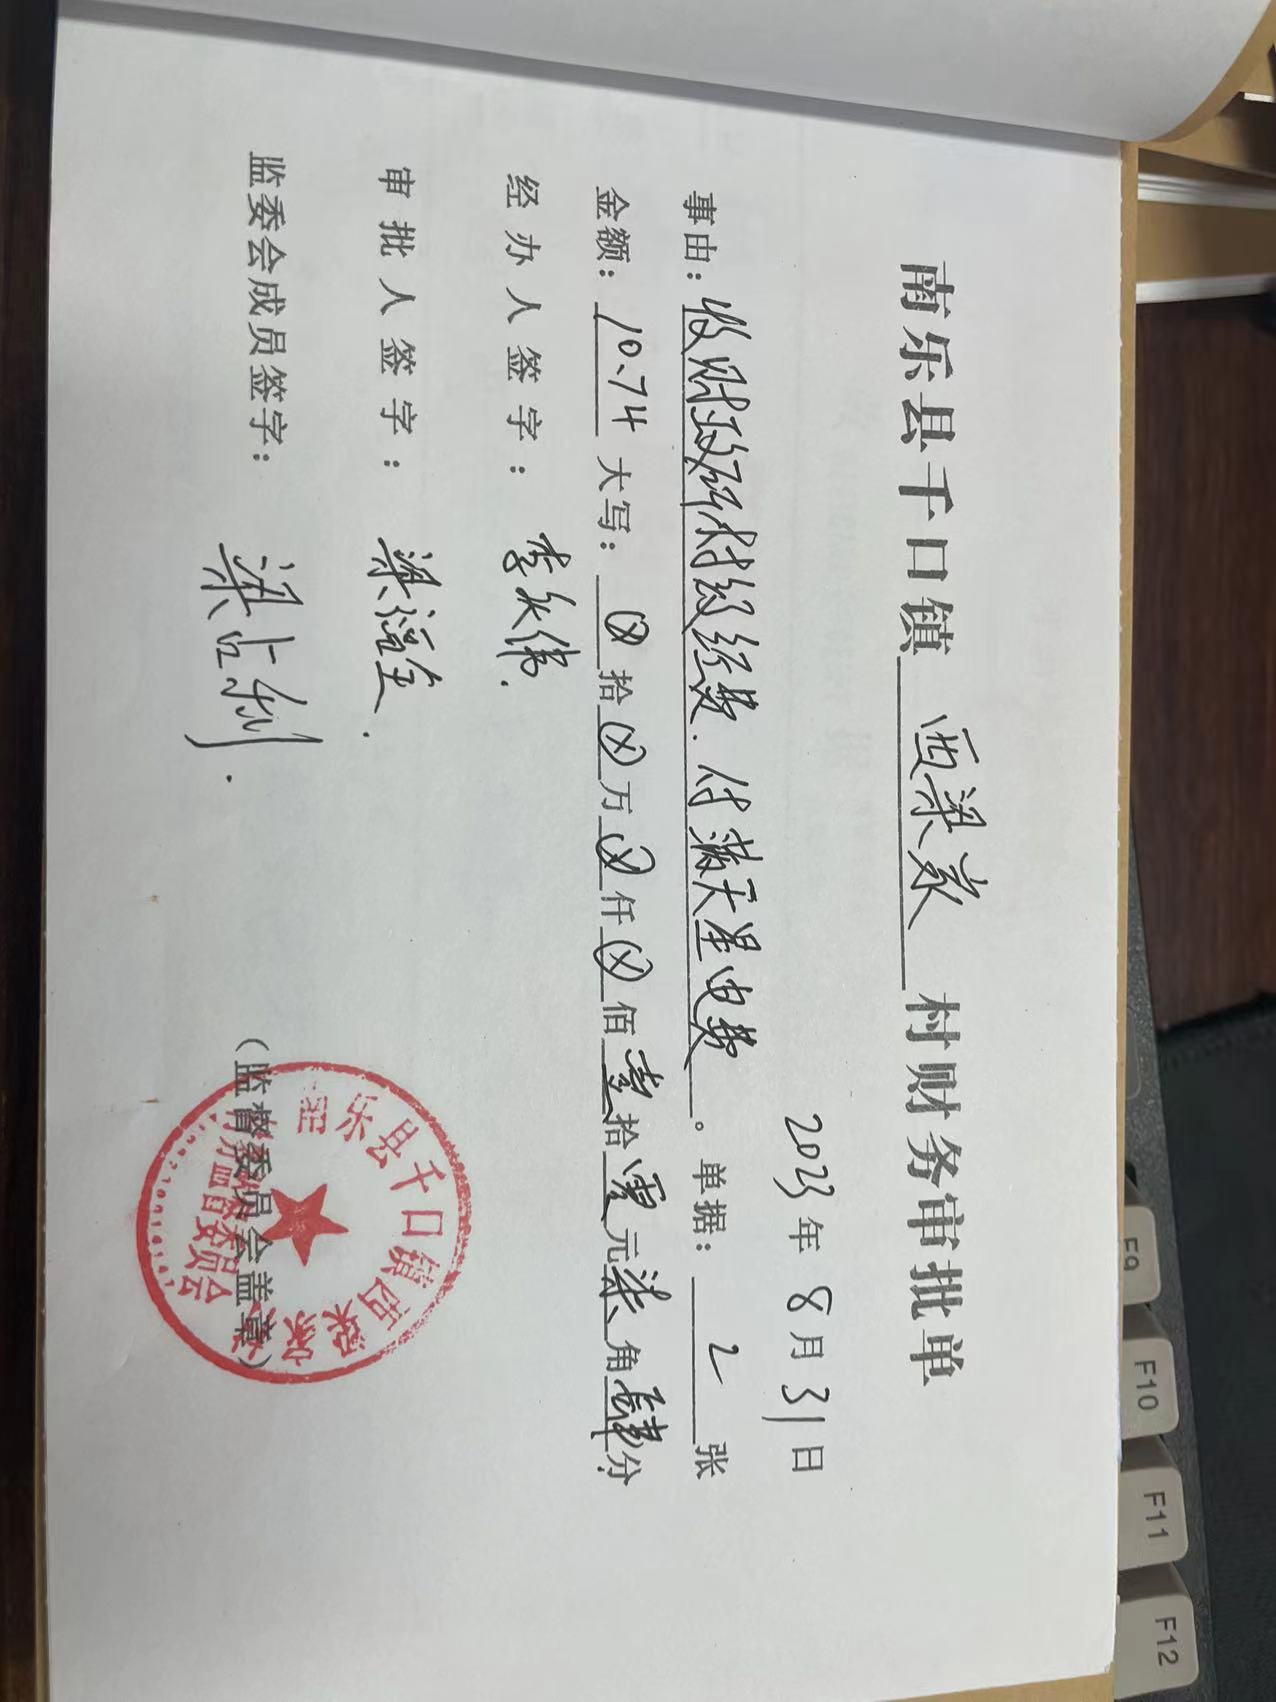 南乐县千口镇 西梁家 村财务审批单
2023年 8月 31日
事由：收财政所村级经费.付满天星电费。单据：2张
金额：10.74 大写：ⓧ拾ⓧ万ⓧ仟ⓧ佰壹拾零元柒角肆分
经办人签字：李
审批人签字：梁
监委会成员签字：梁占利.
（监督委员会盖章）
南乐县千口镇西梁家
村务监督委员会
F9
F10
F11
F12